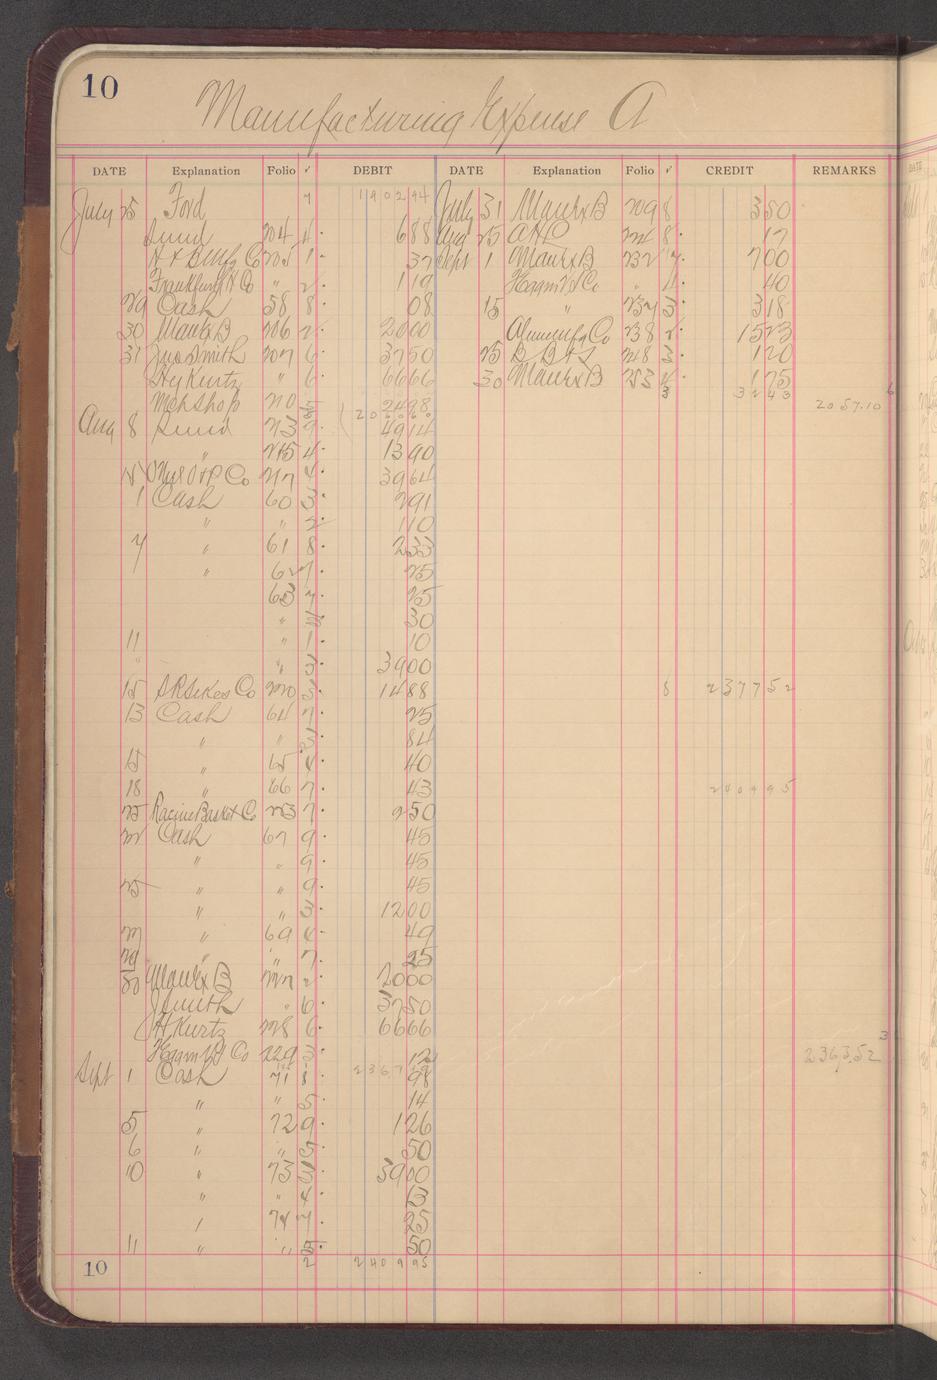 10
Manufacturing Expense A
DATE Explanation Folio ✓ DEBIT DATE Explanation Folio ✓ CREDIT REMARKS
July 25 Ford 7 1902 94 July 31 Manfx B 209 8 3 50
Sund 204 4 6 88 Aug 25 224 8 17
Co 205 1 37 Sept 1 Manfx B 232 7 7 00
Frankfurth H Co " 2 1 19 Co " 4 40
29 Cash 58 8 08 15 " 237 3 3 18
30 Manfx B 206 2 20 00 Co 238 2 15 23
31 Jno Smith 207 6 37 50 25 248 3 1 20
Hy Kurtz " 6 66 66 30 Manfx B 253 4 1 75
3 32 43
Mch Shop 210 5 24 98 2057.10 6
Aug 8 Sund 213 9 49 14
" 215 4 13 90
Co 217 4 39 64
1 Cash 60 3 2 91
" " 2 1 10
7 " 61 8 2 33
" 62 7 25
63 7 25
" 30
11 " 1 10
" " 3 39 00
15 S R Sikes Co 220 3 14 88 8 2377 52
13 Cash 64 7 25
" " 3 84
15 " 65 4 40
18 " 66 7 43 2409 95
25 Racine Basket Co 223 7 2 50
22 Cash 67 9 45
" " 9 45
25 " " 9 45
" " 3 12 00
27 " 69 4 49
29 " " 7 25
30 Manfx B 227 2 20 00
J Smith " 6 37 50
H Kurtz 228 6 66 66
Co 229 3 12 2363.52 3
Sept 1 Cash 71 8 98
" " 5 14
5 " 72 9 1 26
6 " " 5 50
10 " 73 3 39 00
" " 4 13
" 74 7 25
11 " " 5 50
10 2 2409 95